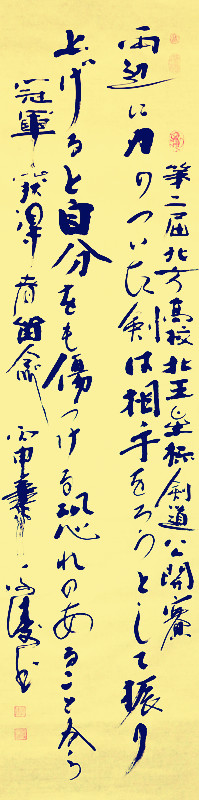 第二届北方高校北王杯剣道公開賽
両辺に刃のついた剣は相手をろうとして振り
上げると自分をも傷つける恐れのあることから
冠軍 丙申 書